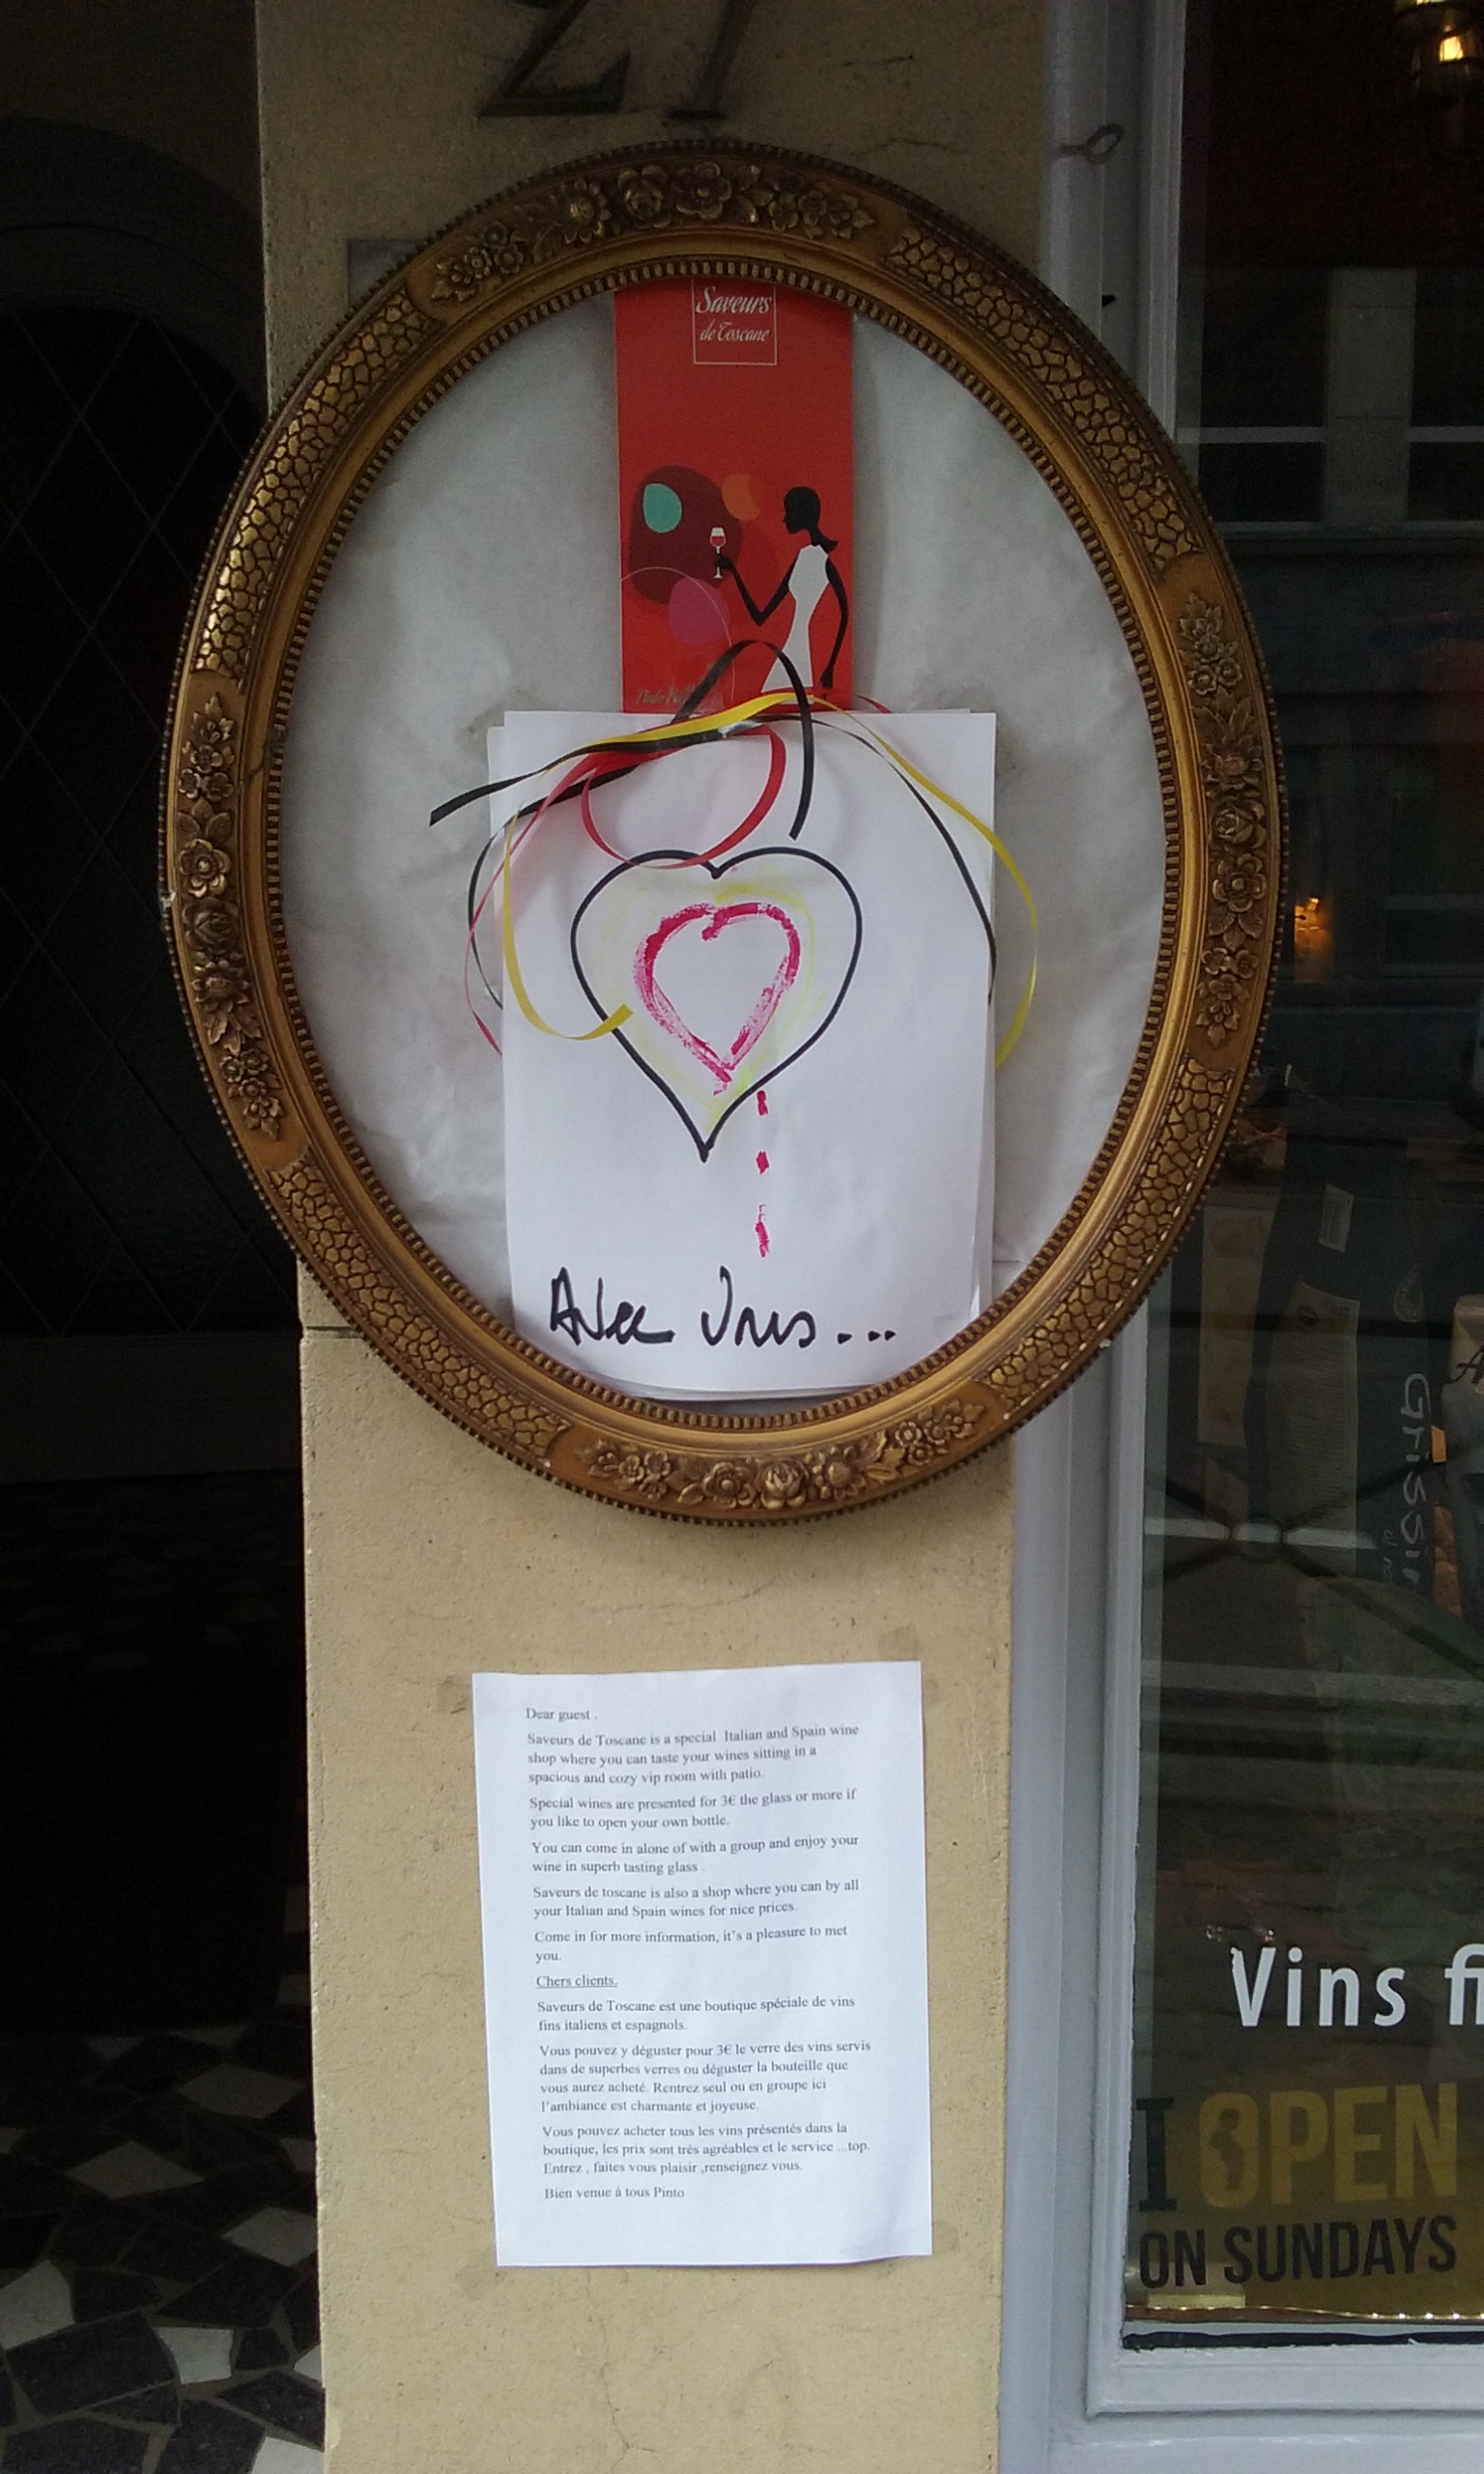 27
Saveurs
de Toscane
Avec Vous...
Dear guest .
Saveurs de Toscane is a special Italian and Spain wine
shop where you can taste your wines sitting in a
spacious and cozy vip room with patio.
Special wines are presented for 3€ the glass or more if
you like to open your own bottle.
You can come in alone of with a group and enjoy your
wine in superb tasting glass .
Saveurs de toscane is also a shop where you can by all
your Italian and Spain wines for nice prices.
Come in for more information, it's a pleasure to met
you.
Chers clients.
Saveurs de Toscane est une boutique spéciale de vins
fins italiens et espagnols.
Vous pouvez y déguster pour 3€ le verre des vins servis
dans de superbes verres ou déguster la bouteille que
vous aurez acheté. Rentrez seul ou en groupe ici
l'ambiance est charmante et joyeuse.
Vous pouvez acheter tous les vins présentés dans la
boutique, les prix sont très agréables et le service ...top.
Entrez , faites vous plaisir ,renseignez vous.
Bien venue à tous Pinto
Grissin
Vins fi
I OPEN
ON SUNDAYS